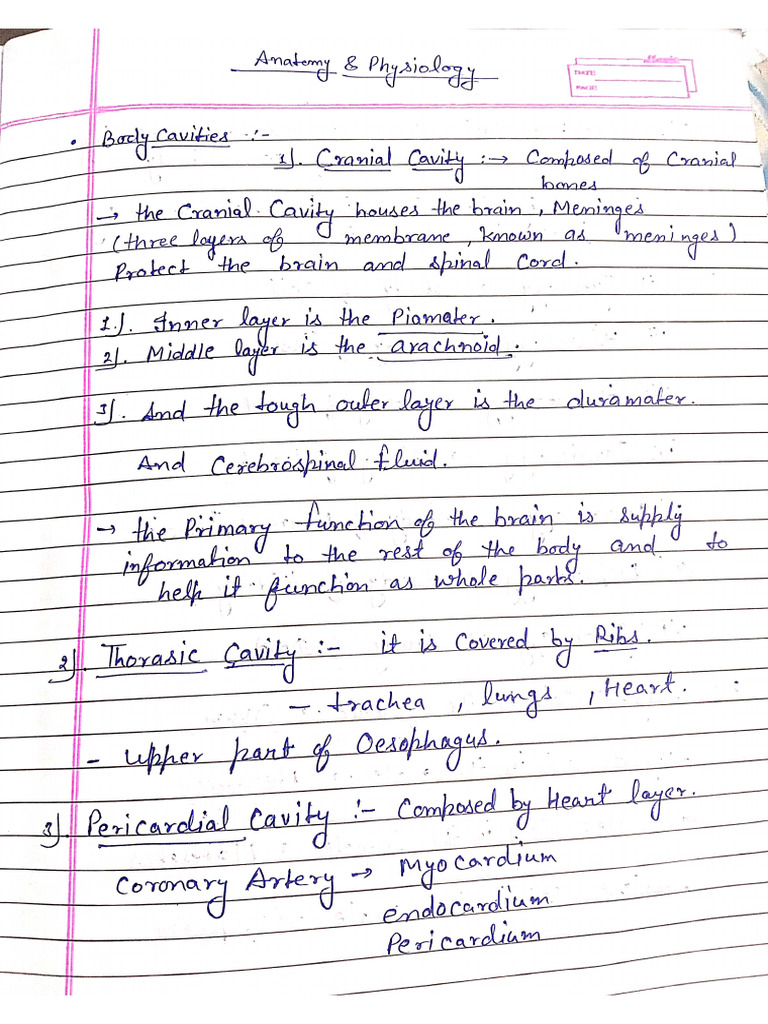 Anatomy & Physiology
DATE:
PAGE:
• Body Cavities :-
1). Cranial Cavity :→ Composed of Cranial
bones
→ the Cranial Cavity houses the brain, Meninges
(three layers of membrane, known as meninges)
Protect the brain and spinal Cord.
1.). Inner layer is the Piamater.
2). Middle layer is the arachnoid.
3). And the tough outer layer is the duramater.
And Cerebrospinal fluid.
→ the Primary function of the brain is supply
information to the rest of the body and to
help it function as whole parts.
2). Thorasic Cavity :- it is Covered by Ribs.
- trachea, lungs, Heart.
- upper part of Oesophagus.
3). Pericardial Cavity :- Composed by Heart layer.
Coronary Artery → Myocardium
endocardium
Pericardium